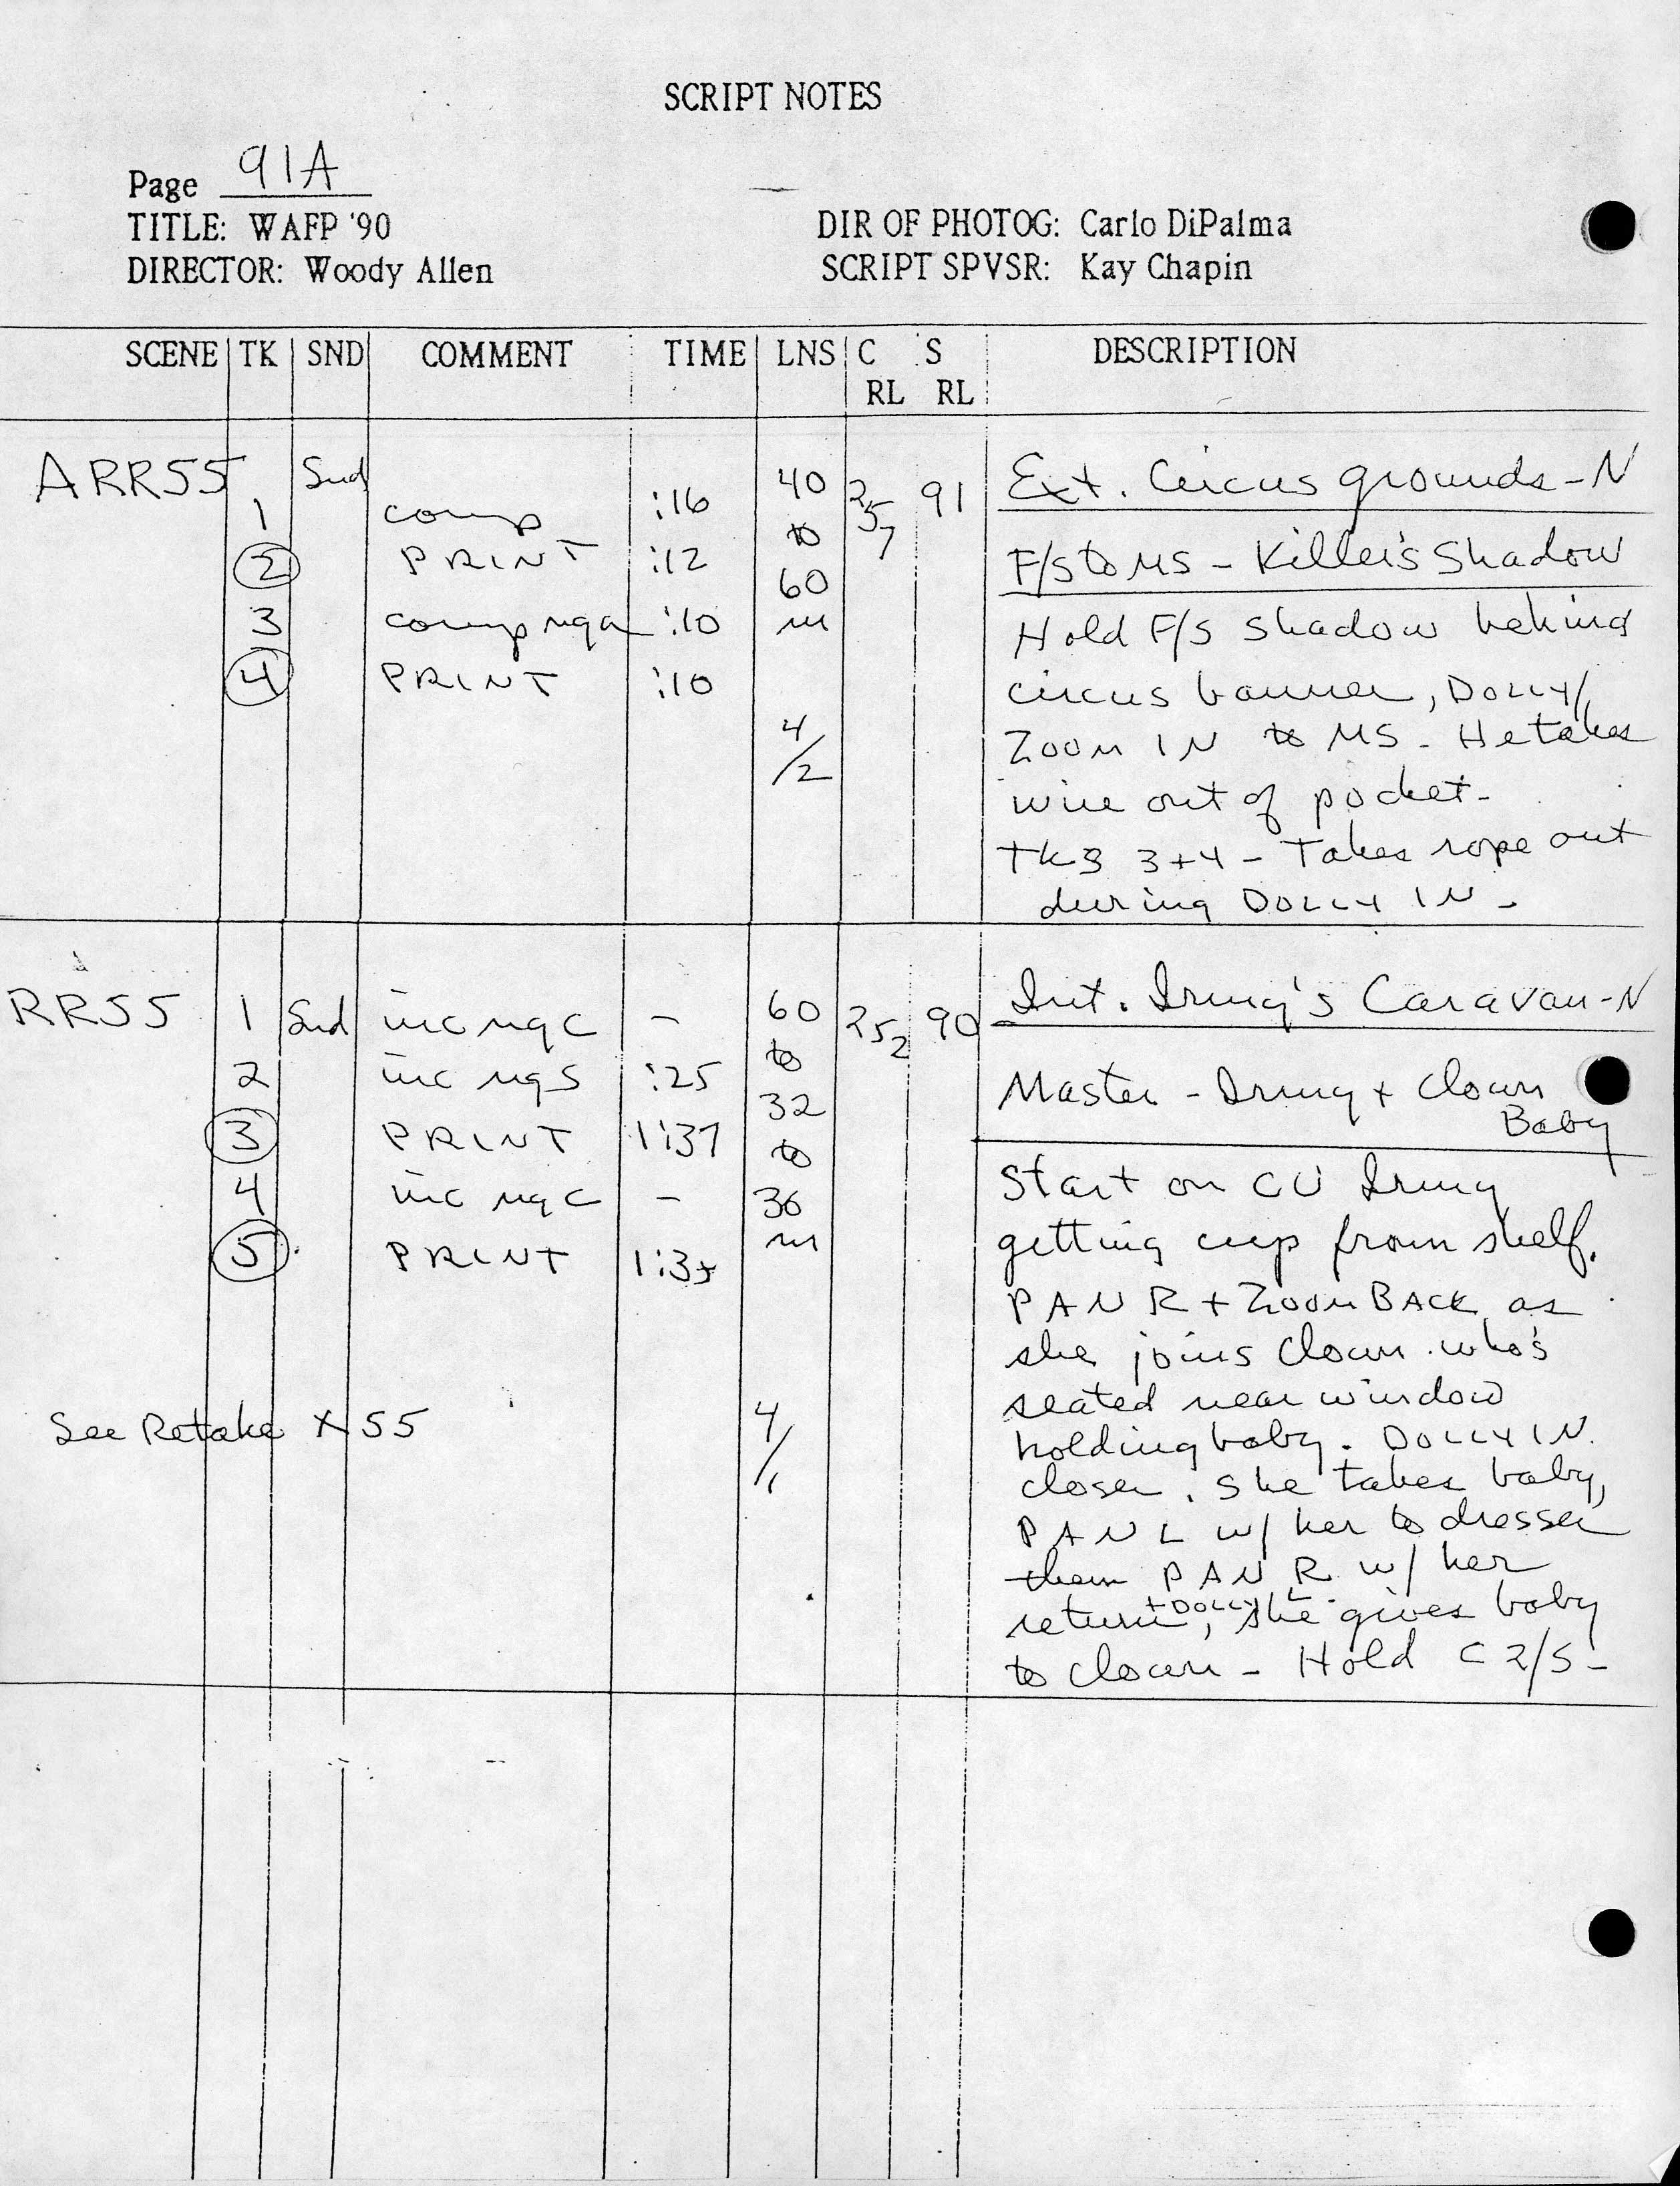 SCRIPT NOTES
Page 91A
TITLE: WAFP '90
DIRECTOR: Woody Allen
DIR OF PHOTOG: Carlo DiPalma
SCRIPT SPVSR: Kay Chapin
SCENE TK SND COMMENT TIME LNS C RL S RL DESCRIPTION
ARR55 Snd 40 257 91 Ext. Circus grounds - N
1 comp :16 to
2 PRINT :12 60 F/S to MS - Killer's Shadow
3 comp nga :10 m Hold F/S shadow behind
4 PRINT :10 circus banner, DOLLY/
4/2 ZOOM IN to MS - He takes
wire out of pocket -
TKS 3+4 - Takes rope out
during DOLLY IN -
RR55 1 Snd inc ngc - 60 252 90 Int. Irmy's Caravan - N
2 inc ngs :25 to
3 PRINT 1:37 32 Master - Irmy + Clown
to Baby
4 inc ngc - 36 Start on CU Irmy
5 PRINT m getting cup from shelf.
PAN R + ZOOM BACK as
she joins Clown who's
See Retake X55 4/1 seated near window
holding baby. DOLLY IN
closer. She takes baby,
PAN L w/ her to dresser
then PAN R w/ her
return + DOLLY L, she gives baby
to clown - Hold C 2/S -